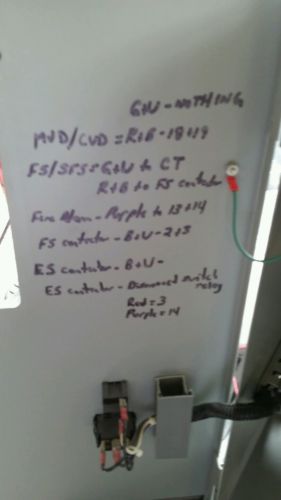 G+W - NOTHING
MUD/CUD = R+B - 18+19
FS/SFS = G+W to CT
R+B to FS contactor
Fire Alarm - Purple to 13+14
FS contactor - B+W - 2+3
ES contactor - B+W -
ES contactor - Disconnect switch
relay
Red = 3
Purple = 14